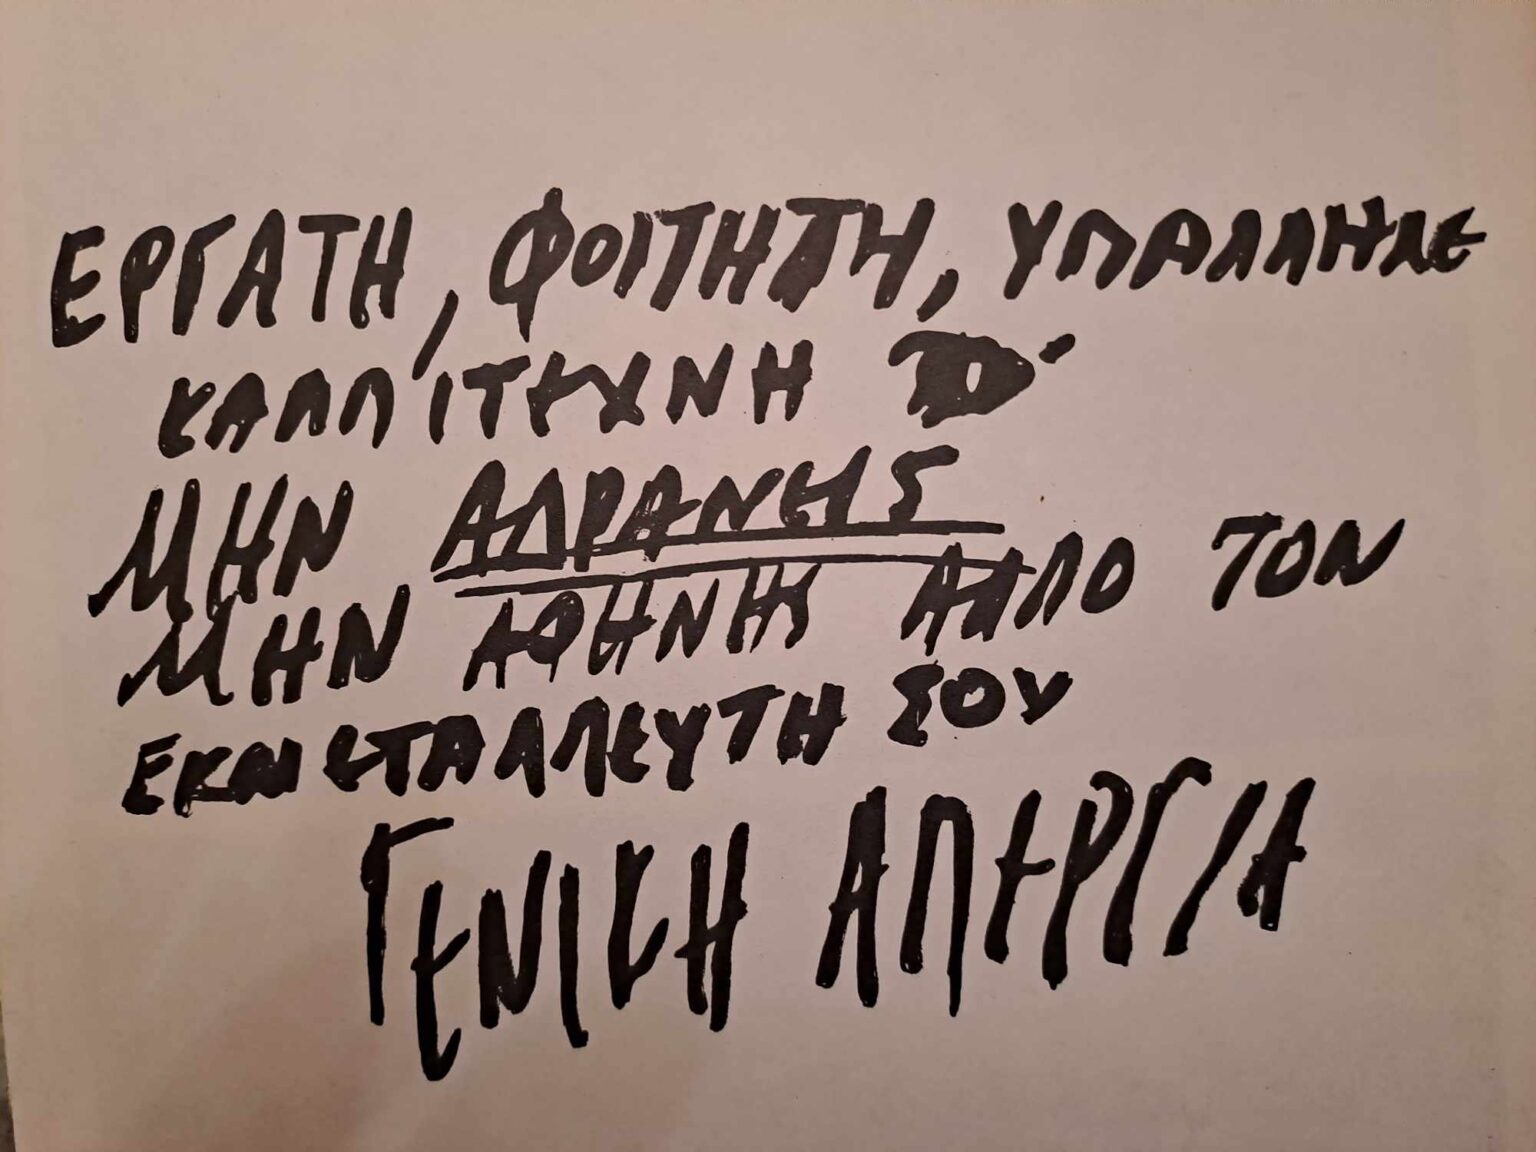 ΕΡΓΑΤΗ, ΦΟΙΤΗΤΗ, ΥΠΑΛΛΗΛΕ
ΚΑΛΛΙΤΕΧΝΗ
ΜΗΝ ΑΔΡΑΝΗΣ
ΜΗΝ ΤΟΝ
ΕΚΜΕΤΑΛΛΕΥΤΗ ΣΟΥ
ΓΕΝΙΚΗ ΑΠΕΡΓΙΑ